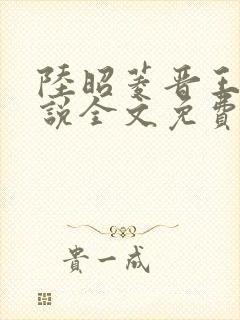 陸昭菱晋王
說全文免費
貴一成